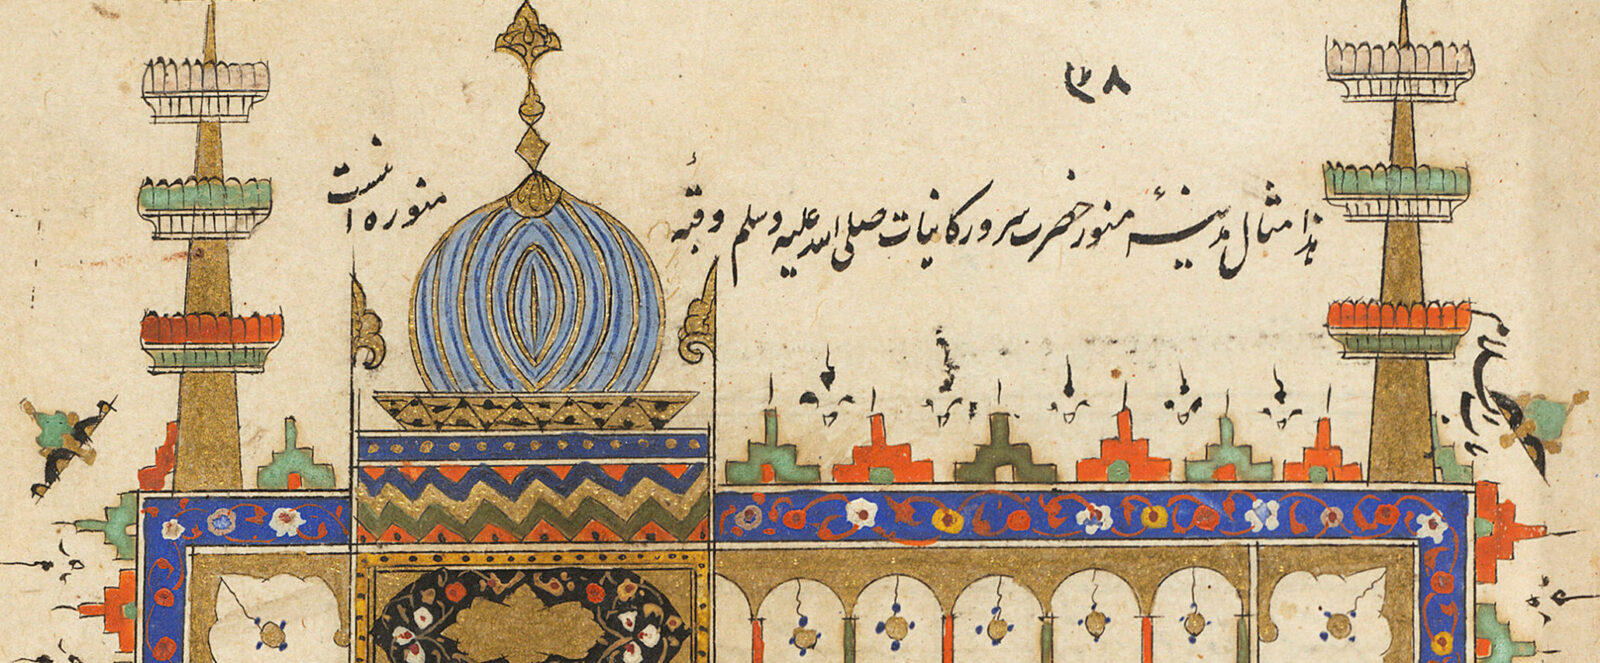 هذا مثال مدینهٔ منور حضرت سرور کاینات صلی الله علیه وسلم و قبهٔ
منوره است
باب السلام